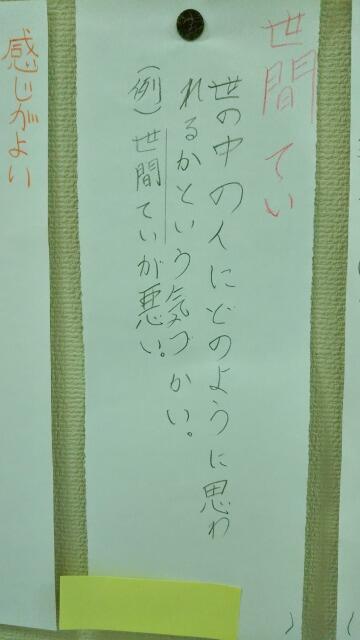 世間てい
世の中の人にどのように思わ
れるかという気づかい。
(例)世間ていが悪い。
感じがよい